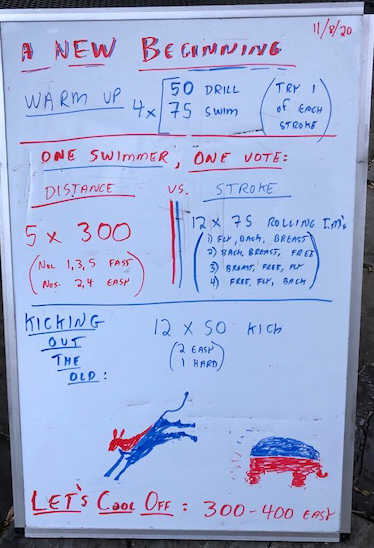 11/8/20
A NEW BEGINNING
WARM UP 4x 50 DRILL
75 SWIM
(TRY 1
of EACH
STROKE)
ONE SWIMMER, ONE VOTE:
DISTANCE VS. STROKE
5 x 300
(Nos. 1, 3, 5 FAST
Nos. 2, 4 EASY)
12 x 75 ROLLING I.M.'s
(1) FLY, BACK, BREAST
2) BACK, BREAST, FREE
3) BREAST, FREE, FLY
4) FREE, FLY, BACK)
KICKING
OUT
THE
OLD:
12 x 50 KICK
(2 EASY
1 HARD)
LET'S COOL OFF: 300-400 EASY